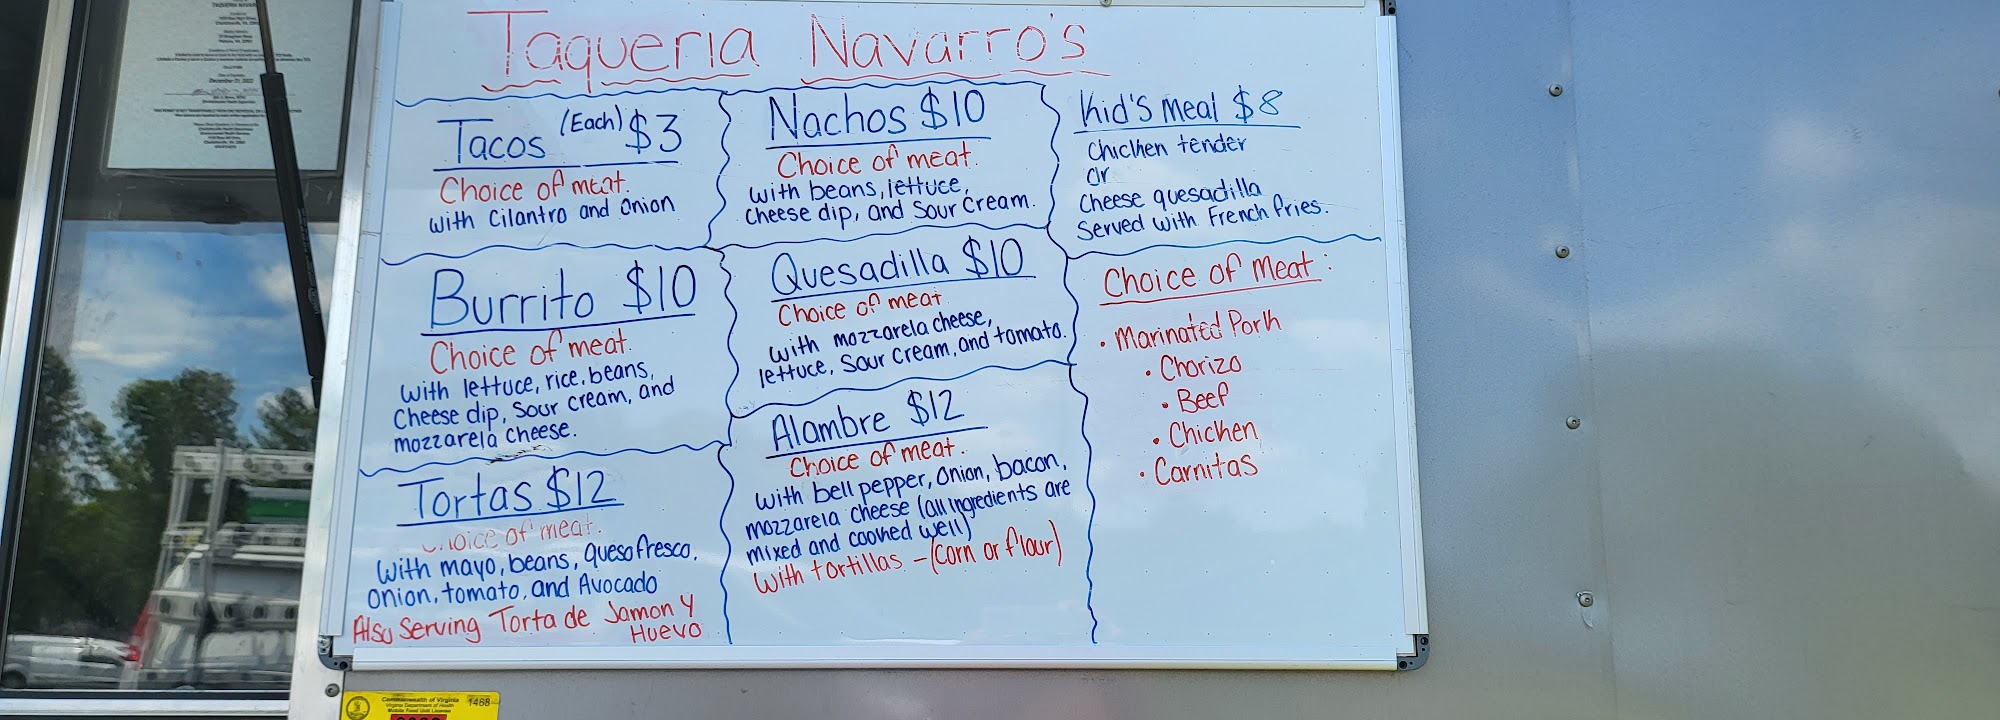 Taqueria Navarro's
Tacos (Each) $3
Choice of meat.
with Cilantro and Onion
Burrito $10
Choice of meat.
with lettuce, rice, beans,
Cheese dip, Sour cream, and
mozzarela cheese.
Tortas $12
Choice of meat.
with mayo, beans, queso fresco,
Onion, tomato, and Avocado
Also Serving Torta de Jamon Y
Huevo
Nachos $10
Choice of meat.
with beans, lettuce,
Cheese dip, and Sour Cream.
Quesadilla $10
Choice of meat
with mozzarela cheese,
lettuce, Sour Cream, and tomato.
Alambre $12
Choice of meat.
with bell pepper, Onion, bacon,
mozzarela cheese (all ingredients are
mixed and cooked well)
With tortillas - (Corn or flour)
Kid's Meal $8
Chicken tender
Or
Cheese quesadilla
Served with French fries.
Choice of Meat:
• Marinated Pork
• Chorizo
• Beef
• Chicken
• Carnitas
Commonwealth of Virginia
Virginia Department of Health
Mobile Food Unit License
1468